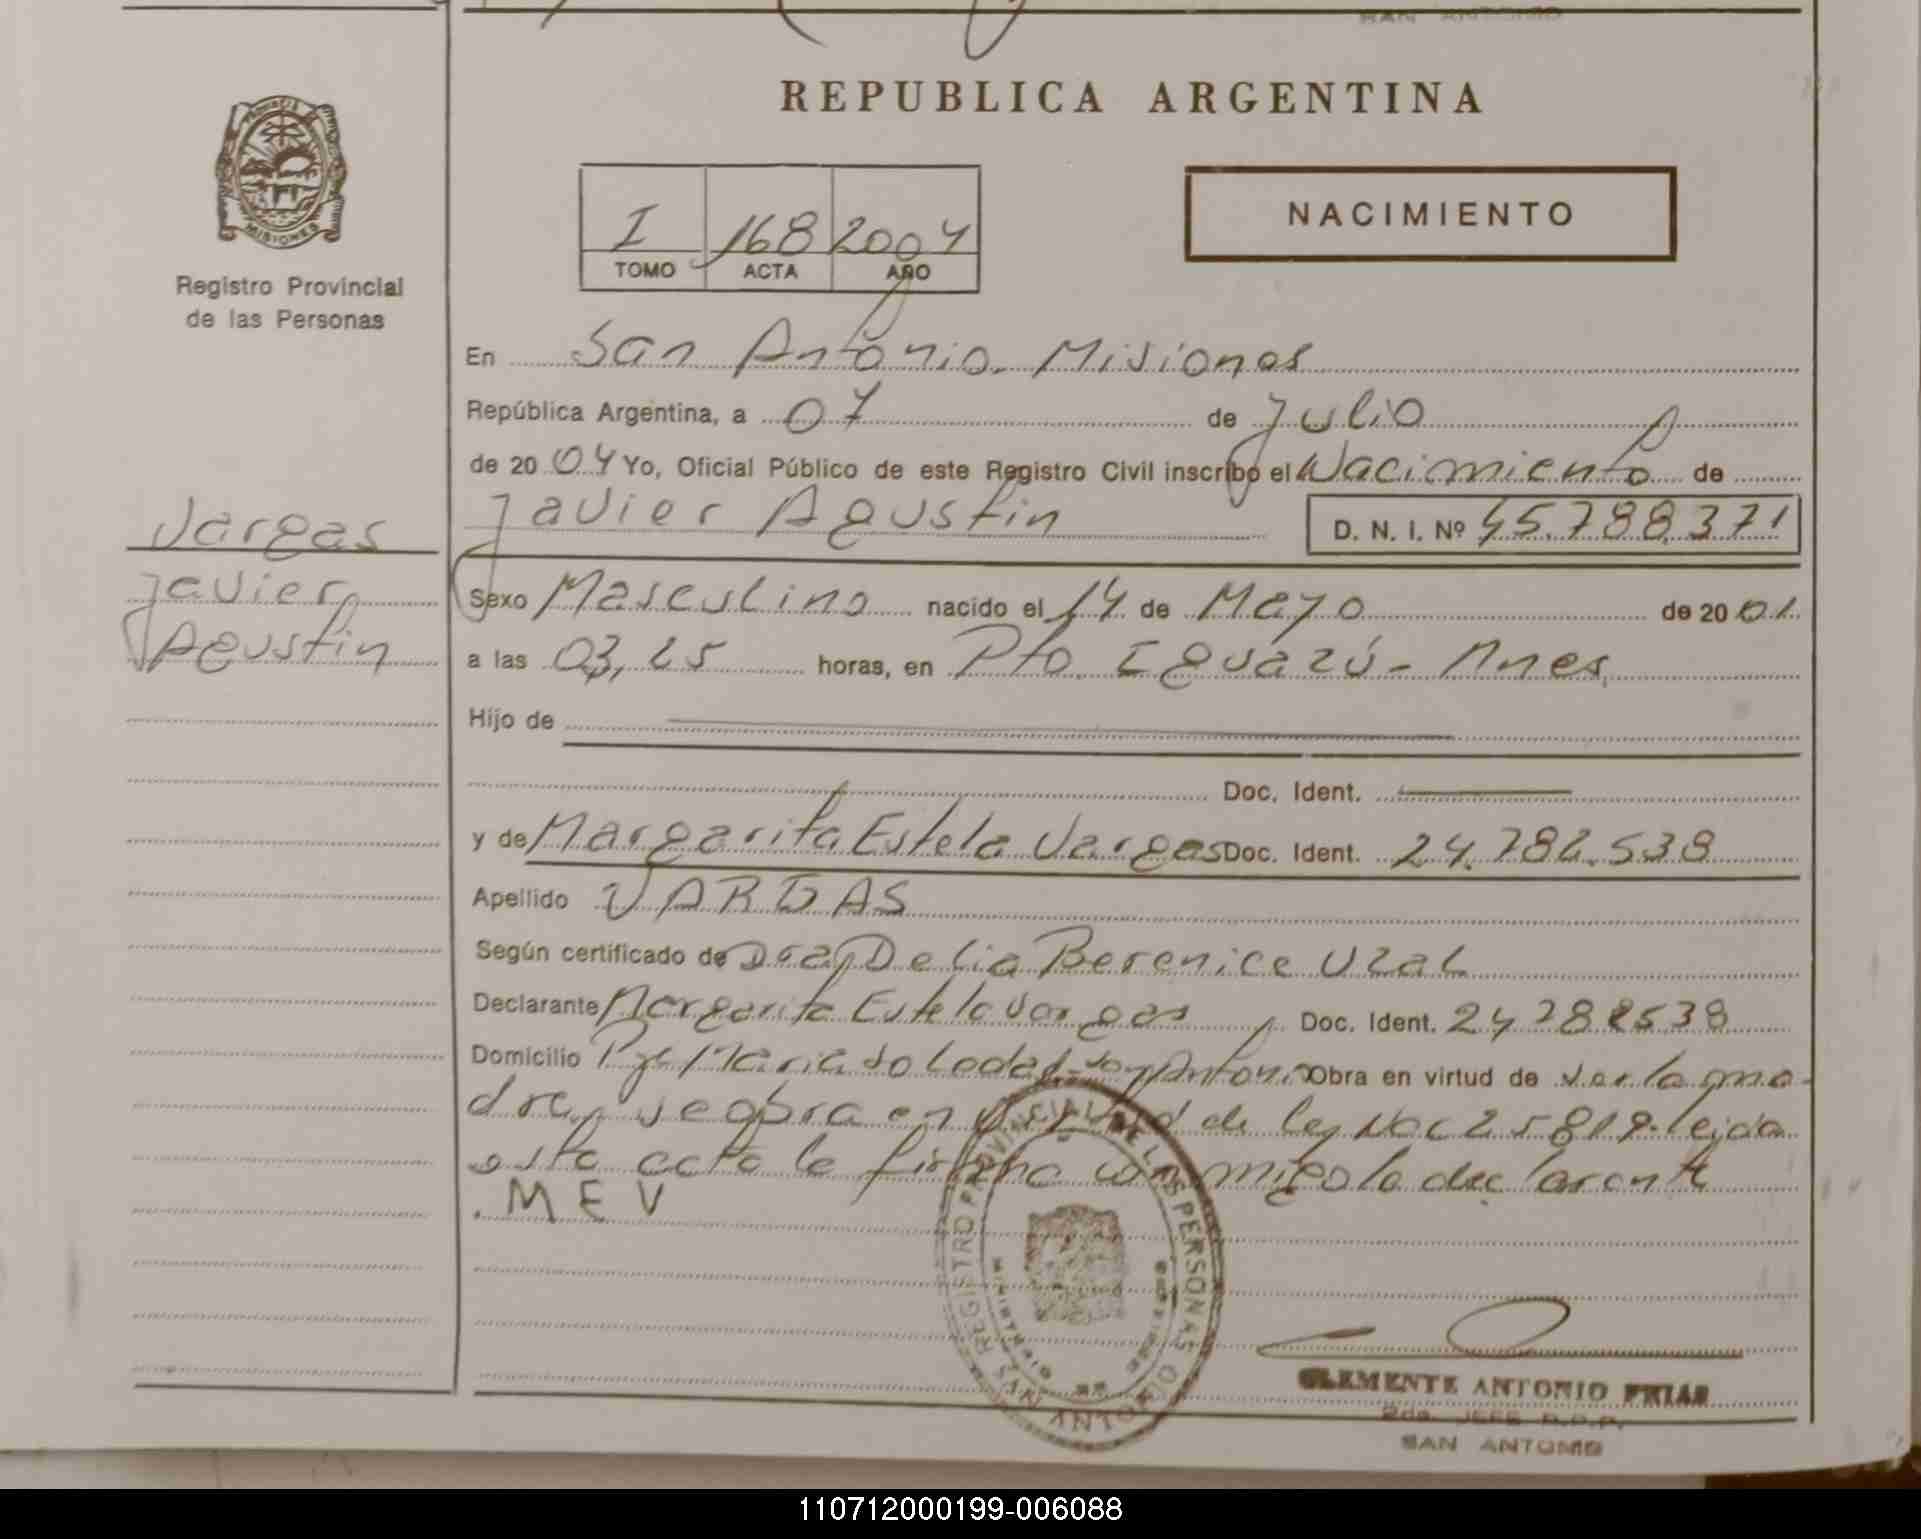 SAN ANTONIO
REPUBLICA ARGENTINA
PROVINCIA
MISIONES
Registro Provincial
de las Personas
I 168 2004
TOMO ACTA AÑO
NACIMIENTO
En San Antonio. Misiones
República Argentina, a 07 de Julio
de 20 04 Yo, Oficial Público de este Registro Civil inscribo el Nacimiento de
Javier Agustin D. N. I. Nº 45.788.371
Vargas
Javier
Agustin
Sexo Masculino nacido el 14 de Mayo de 20 01
a las 03,25 horas, en Pto. Iguazú - Mnes.
Hijo de
Doc. Ident.
y de Margarita Estela Vargas Doc. Ident. 24.782.538
Apellido VARGAS
Según certificado de Dra. Delia Berenice Uzal
Declarante Margarita Estela Vargas Doc. Ident. 24 782538
Domicilio Pje Maria Soledad San Antonio Obra en virtud de ser la ma-
dre, se obra en de ley Nac 25819. leida
esta acta la firma con migo la declarante
. M E V
REGISTRO PROVINCIAL DE LAS PERSONAS
SAN ANTONIO
CLEMENTE ANTONIO FRIAS
2do. JEFE R.P.P.
SAN ANTONIO
110712000199-006088